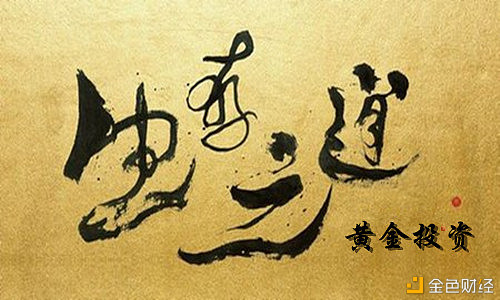 生存之道
黄金投资
金色财经